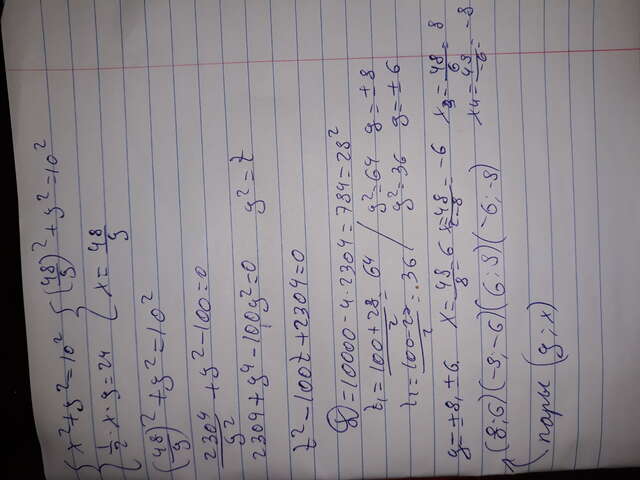 { x² + y² = 10² { (48/y)² + y² = 10²
{ 1/2 · x · y = 24 { x = 48/y
(48/y)² + y² = 10²
2304/y² + y² - 100 = 0
2304 + y⁴ - 100y² = 0 y² = t
t² - 100t + 2304 = 0
D = 10000 - 4 · 2304 = 784 = 28²
t₁ = (100 + 28)/2 = 64 / y² = 64 y = ±8
t₂ = (100 - 28)/2 = 36 / y² = 36 y = ±6
y = ±8, ±6. x = 48/8 = 6 x₂ = 48/-8 = -6 x₃ = 48/6 = 8
x₄ = 48/-6 = -8
(8; 6) (-8; -6) (6; 8) (-6; -8)
пары (y; x)